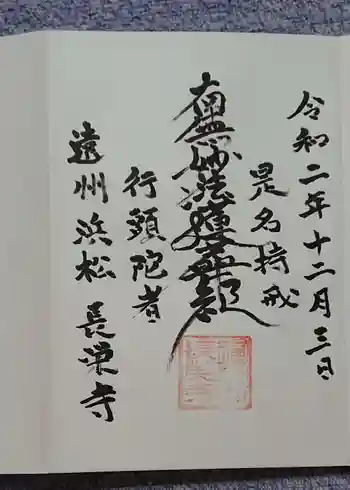 令和二年十二月三日
是名持戒
南無妙法蓮華経
行頭陀者
遠州浜松 長栄寺